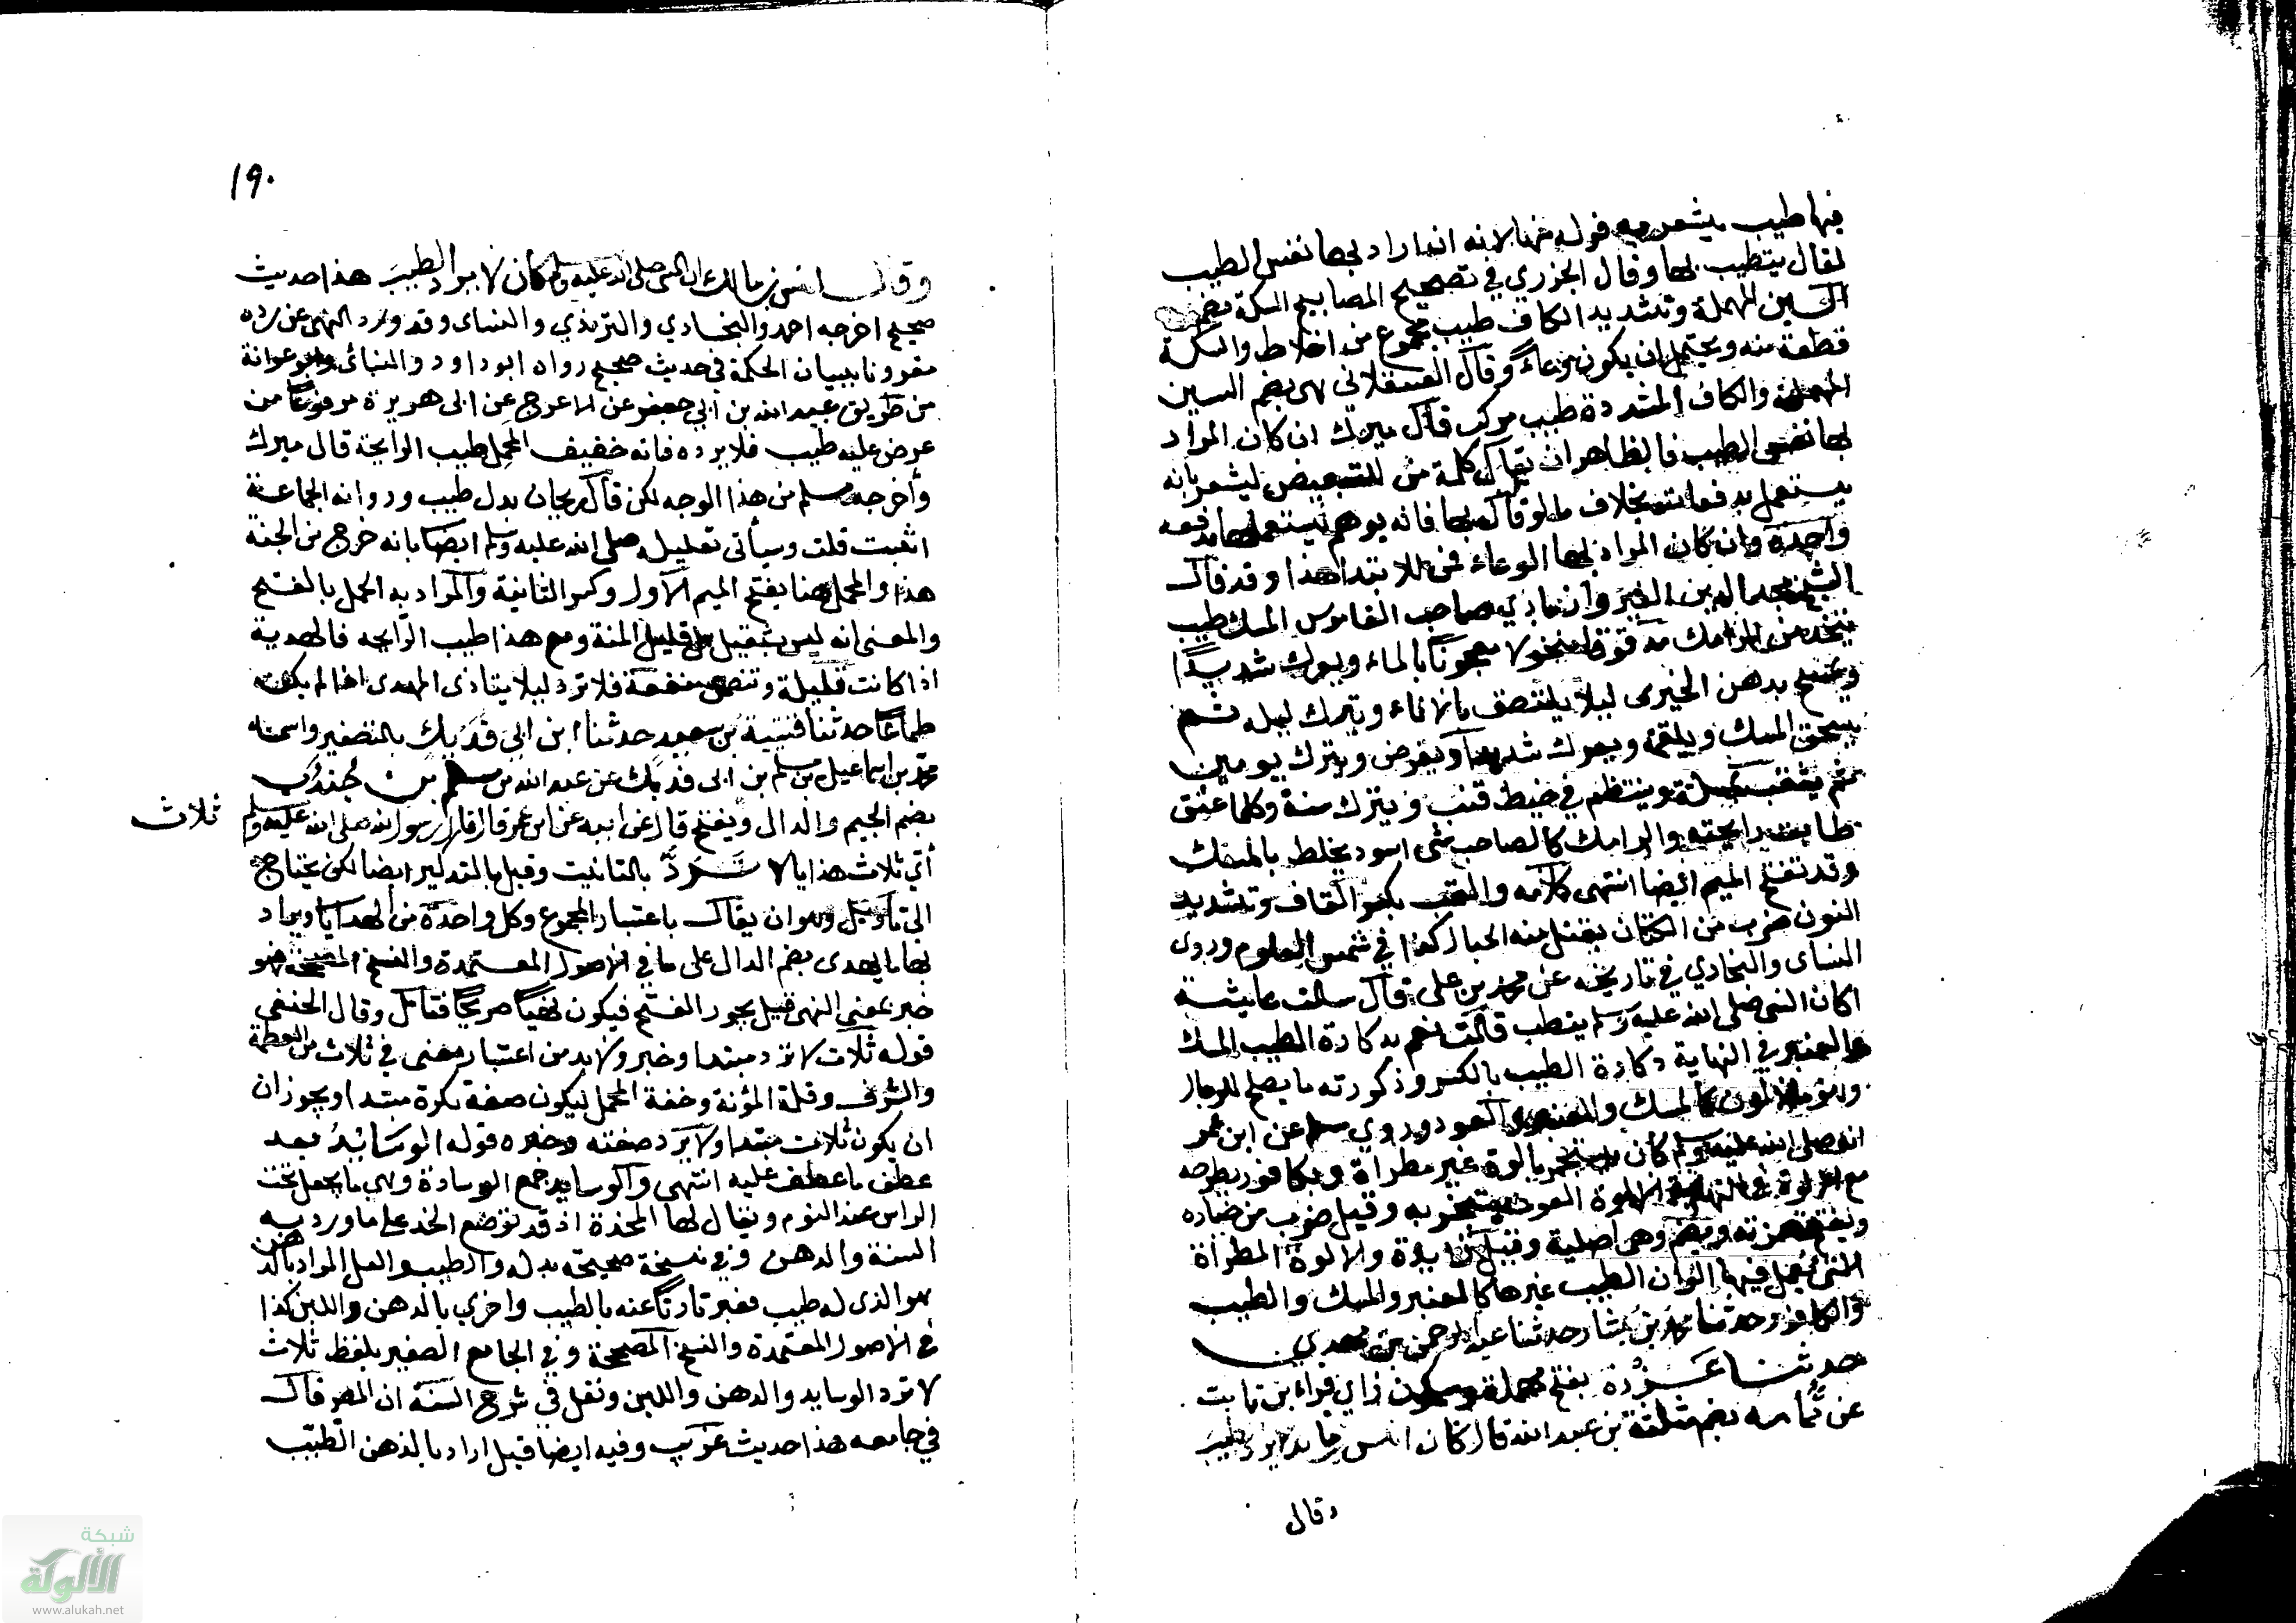 فيها طيب يشعر به قوله منها لانه اذا اراد بها نفس الطيب
لقال يتطيب بها وقال الجزري في تصحيح المصابيح السكة بضم
السين المهملة وتشديد الكاف طيب مجموع من اخلاط والسكة
قطعة منه ويحتمل ان يكون وعاءً وقال العسقلاني هي بضم السين
المهملة والكاف المشددة طيب مركب قال ميرك ان كان المراد
بها نفس الطيب فالظاهر ان يقال كلمة من للتبعيض ليشعر بانه
يستعمل بدفعات بخلاف ما لو قال بها فانه يوهم يستعملها بدفعه
واحدة وان كان المراد بها الوعاء فمن للابتدا هذا وقد قال
الشيخ مجد الدين الفيروزابادي صاحب القاموس السك طيب
يتخذ من الرامك مدقوقا منخولا معجونًا بالماء ويعرك شديدًا
ويمسح بدهن الخيرى ليلا يلتصق بالاناء ويترك ليله ثم
يسحق المسك ويلقمه ويعرك شديدًا ويقرص ويترك يومين
ثم يثقب بمسلة وينتظم في خيط قنب ويترك سنة وكلما عتق
طابت رايحته والرامك كالصاحب شي اسود يخلط بالمسك
وقد تفتح الميم ايضا انتهى كلامه والقنب بكسر القاف وتشديد
النون ضرب من الكتان يفتل منه الحبال كذا في شمس العلوم وروى
النساى والبخاري في تاريخه عن محمد بن على قال سالت عايشة
اكان النبي صلى الله عليه وسلم يتطيب قالت نعم بدكارة الطيب المسك
والعنبر في النهاية دكارة الطيب بالكسر وذكورته ما يصلح للرجال
وهو ما لا لون له كالمسك والعنبر والعود وروي مسلم عن ابن عمر
انه صلى الله عليه وسلم كان يستجمر بالوة غير مطراة وبكافور يطرحه
مع الالوة في النهاية الالوة العود يتبخر به وقيل ضرب من خياره
وتفتح همزته وتضم وهى اصلية وقيل زايدة والالوة المطراة
التي يعمل فيها الوان الطيب غيرها كالعنبر والمسك والطيب
والكافور حدثنا محمد بن بشار حدثنا عبد الرحمن بن مهدي
حدثنا عَزْرة بفتح مهملة وسكون زاي فراء بن ثابت
عن ثُمامه بضم مثلثة بن عبد الله قال كان انس بن مالك لا يرد الطيب
وقال
١٩٠
وقال انس بن مالك ان النبى صلى الله عليه وسلم كان لا يرد الطيب هذا حديث
صحيح اخرجه احمد والبخاري والترمذي والنساى وقد ورد النهى عن رده
مقرونا ببيان الحكمة في حديث صحيح رواه ابو داود والنسائى وابو عوانة
من طريق عبيد الله بن ابي جعفر عن الاعرج عن ابى هريرة مرفوعًا من
عرض عليه طيب فلا يرده فانه خفيف المحمل طيب الرايحة قال ميرك
وأخرجه مسلم من هذا الوجه لكن قال ريحان بدل طيب ورواته الجماعة
اثبت قلت وسيأتى تعليله صلى الله عليه وسلم ايضا بانه خرج من الجنة
هذا والمحمل هنا بفتح الميم الاول وكسر الثانية والمراد به الحمل بالفتح
والمعنى انه ليس بثقيل بل قليل المنة ومع هذا طيب الرايحه فالهدية
اذا كانت قليلة وتتضمن منفعة فلا ترد ليلا يتاذى المهدى اذا لم يكن
طماعًا حدثنا قتيبة بن سعيد حدثنا ابن ابي فديك بالتصغير واسمه
محمد بن اسماعيل بن مسلم بن ابى فديك عن عبد الله بن مسلم بن جندب
بضم الجيم والدال ويفتح قال عن ابيه عن ابن عمر قال قال رسول الله صلى الله عليه وسلم ثلاث
أي ثلاث هدايا لا تُرَدُّ بالتانيث وقيل بالتذكير ايضا لكن يحتاج
الى تاويل وهو ان يقال باعتبار المجموع وكل واحدة من الهدايا ويراد
بها ما يهدى بضم الدال على ما في الاصول المعتمدة والنسخ المصححة فهو
خبر بمعنى النهى قيل يجوز الفتح فيكون نهيًا صريحًا فتامل وقال الحنفى
قوله ثلاث لا ترد مبتدا وخبر ولا بد من اعتبار معنى في ثلاث من العظمة
والشرف وقلة المؤنة وخفة المحمل ليكون صفة نكرة مبتدا ويجوز ان
ان يكون ثلاث مبتدا ولا يرد صفته وخبره قوله الوسَائِدُ بعد
عطف ما عطف عليه انتهى والوسايد جمع الوسادة وهى ما يجعل تحت
الراس عند النوم ويقال لها المخدة اذ قد توضع الخد على ما ورد به
السنة والدهن وفي نسخة صحيحه بدله والطيب ولعل المراد بالدهن
هو الذى له طيب فعبر تارتًا عنه بالطيب واخري بالدهن واللبن كذا
في الاصول المعتمدة والنسخ المصححة وفي الجامع الصغير بلفظ ثلاث
لا ترد الوسايد والدهن واللبن ونقل في شرح السنة ان المصر قال
في جامعه هذا حديث غريب وفيه ايضا قيل اراد بالدهن الطيب
شبكة
الألوكة
www.alukah.net